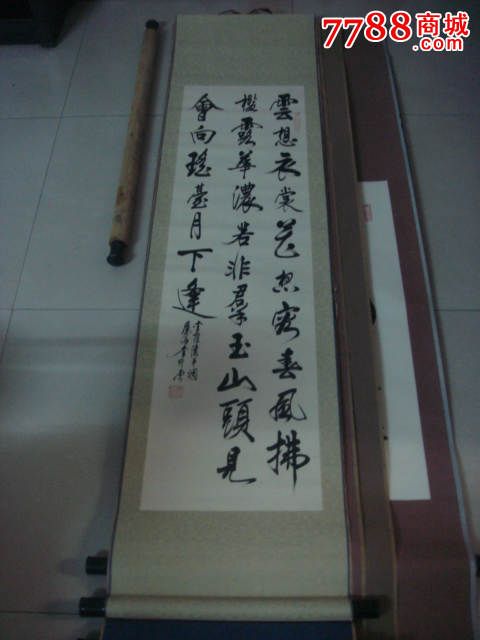 7788商城
雲想衣裳花想容春風拂
檻露華濃若非羣玉山頭見
會向瑤臺月下逢